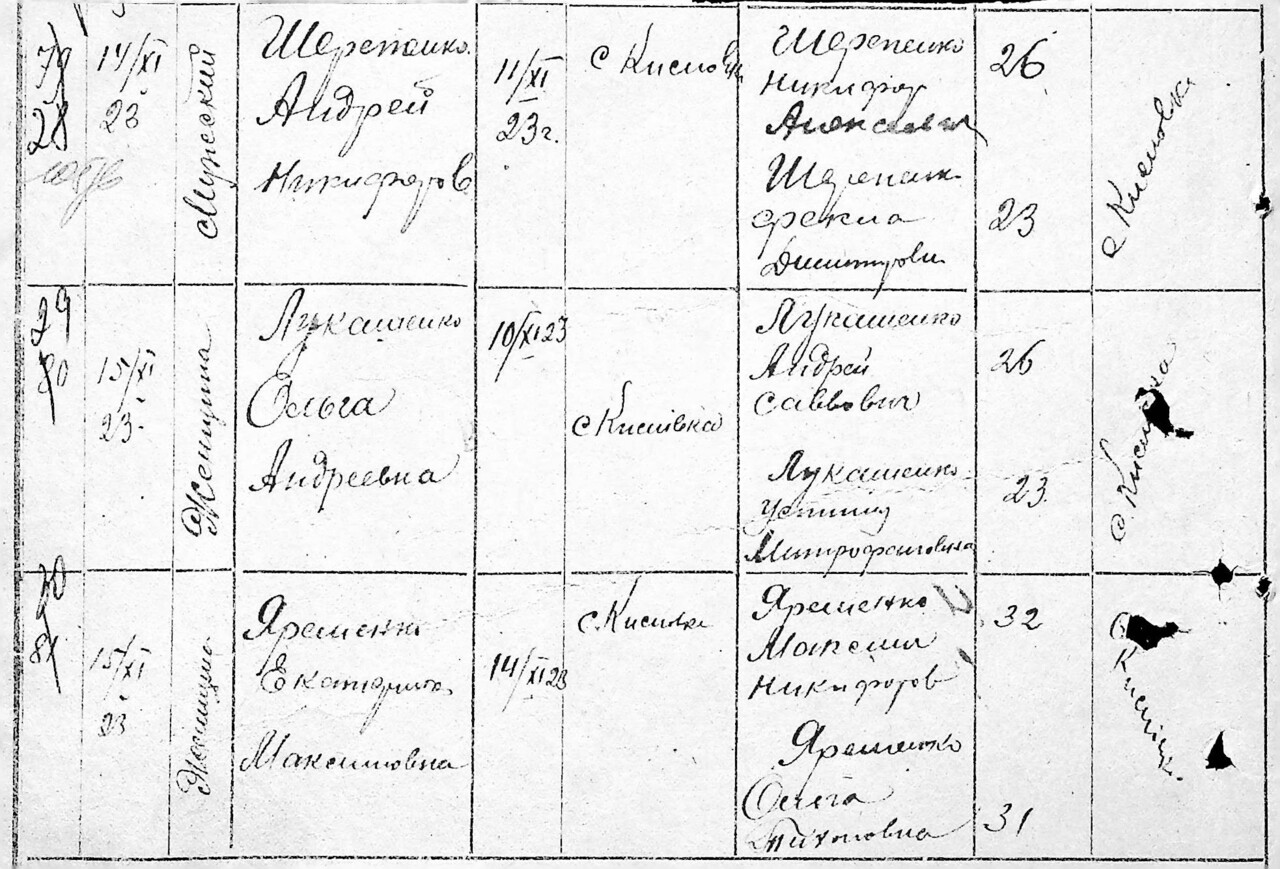 79
28
14/XI
23
Мужский
Шерепенко
Андрей
Никифоров
11/XI
23г.
с Кисловк
Шерепенко
Никифор
Шерепенк
фекла
Димитровн
26
23
с Кисловка
29
80
15/XI
23
Женщина
Лукашенко
Ольга
Андреевна
10/XI 23
с Кислівка
Лукашенко
Андрей
Саввович
Лукашенко
Устинья
Митрофановна
26
23
с Кисловка
30
81
15/XI
23
Женщина
Яременко
Екатерина
Максимовна
14/XI 23
с. Кисловка
Яременко
Максим
Никифоров
Яременко
Ольга
Тихоновна
32
31
с Кислівк